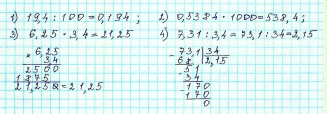 1) 19,4 : 100 = 0,194 ; 2) 0,5384 · 1000 = 538,4 ;
3) 6,25 · 3,4 = 21,25 4) 7,31 : 3,4 = 73,1 : 34 = 2,15
× 6,25
3,4
2500
1875
21,250 = 21,25
73,1 34
68 2,15
- 51
34
- 170
170
0